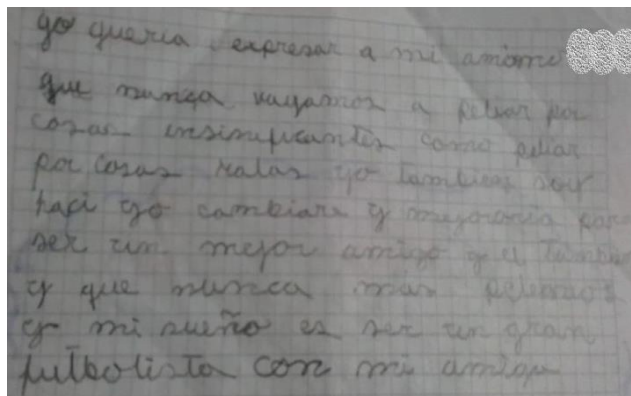 yo queria expresar a mi
que nunca vayamos a peliar por
cosas insinificantes como peliar
por cosas malas yo tambien soy
haci yo cambiare y mejoraria
ser un mejor amigo y el
y que nunca mas peliemos
y mi sueño es ser un gran
futbolista con mi amigo